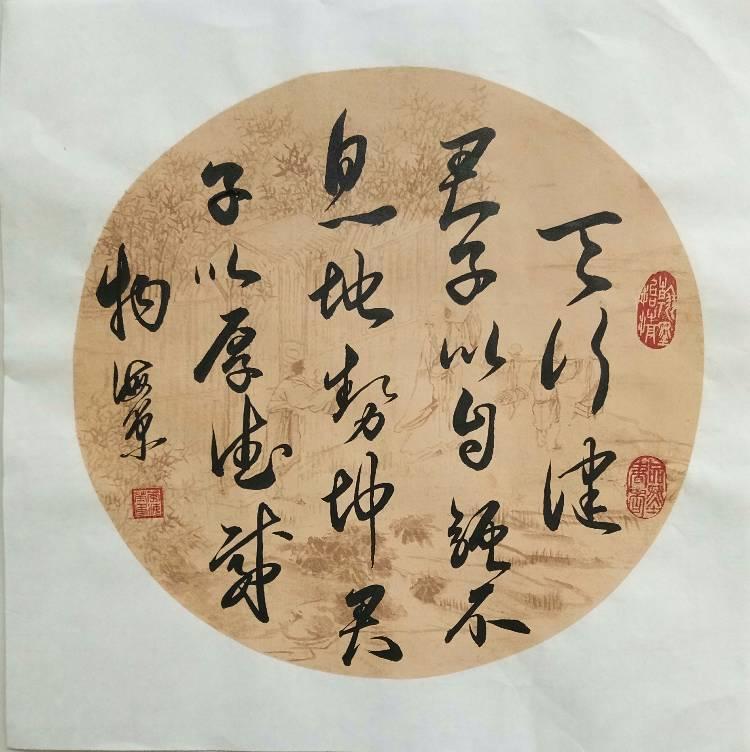 天行健
君子以自强不
息地势坤君
子以厚德载
物
翰墨怡情